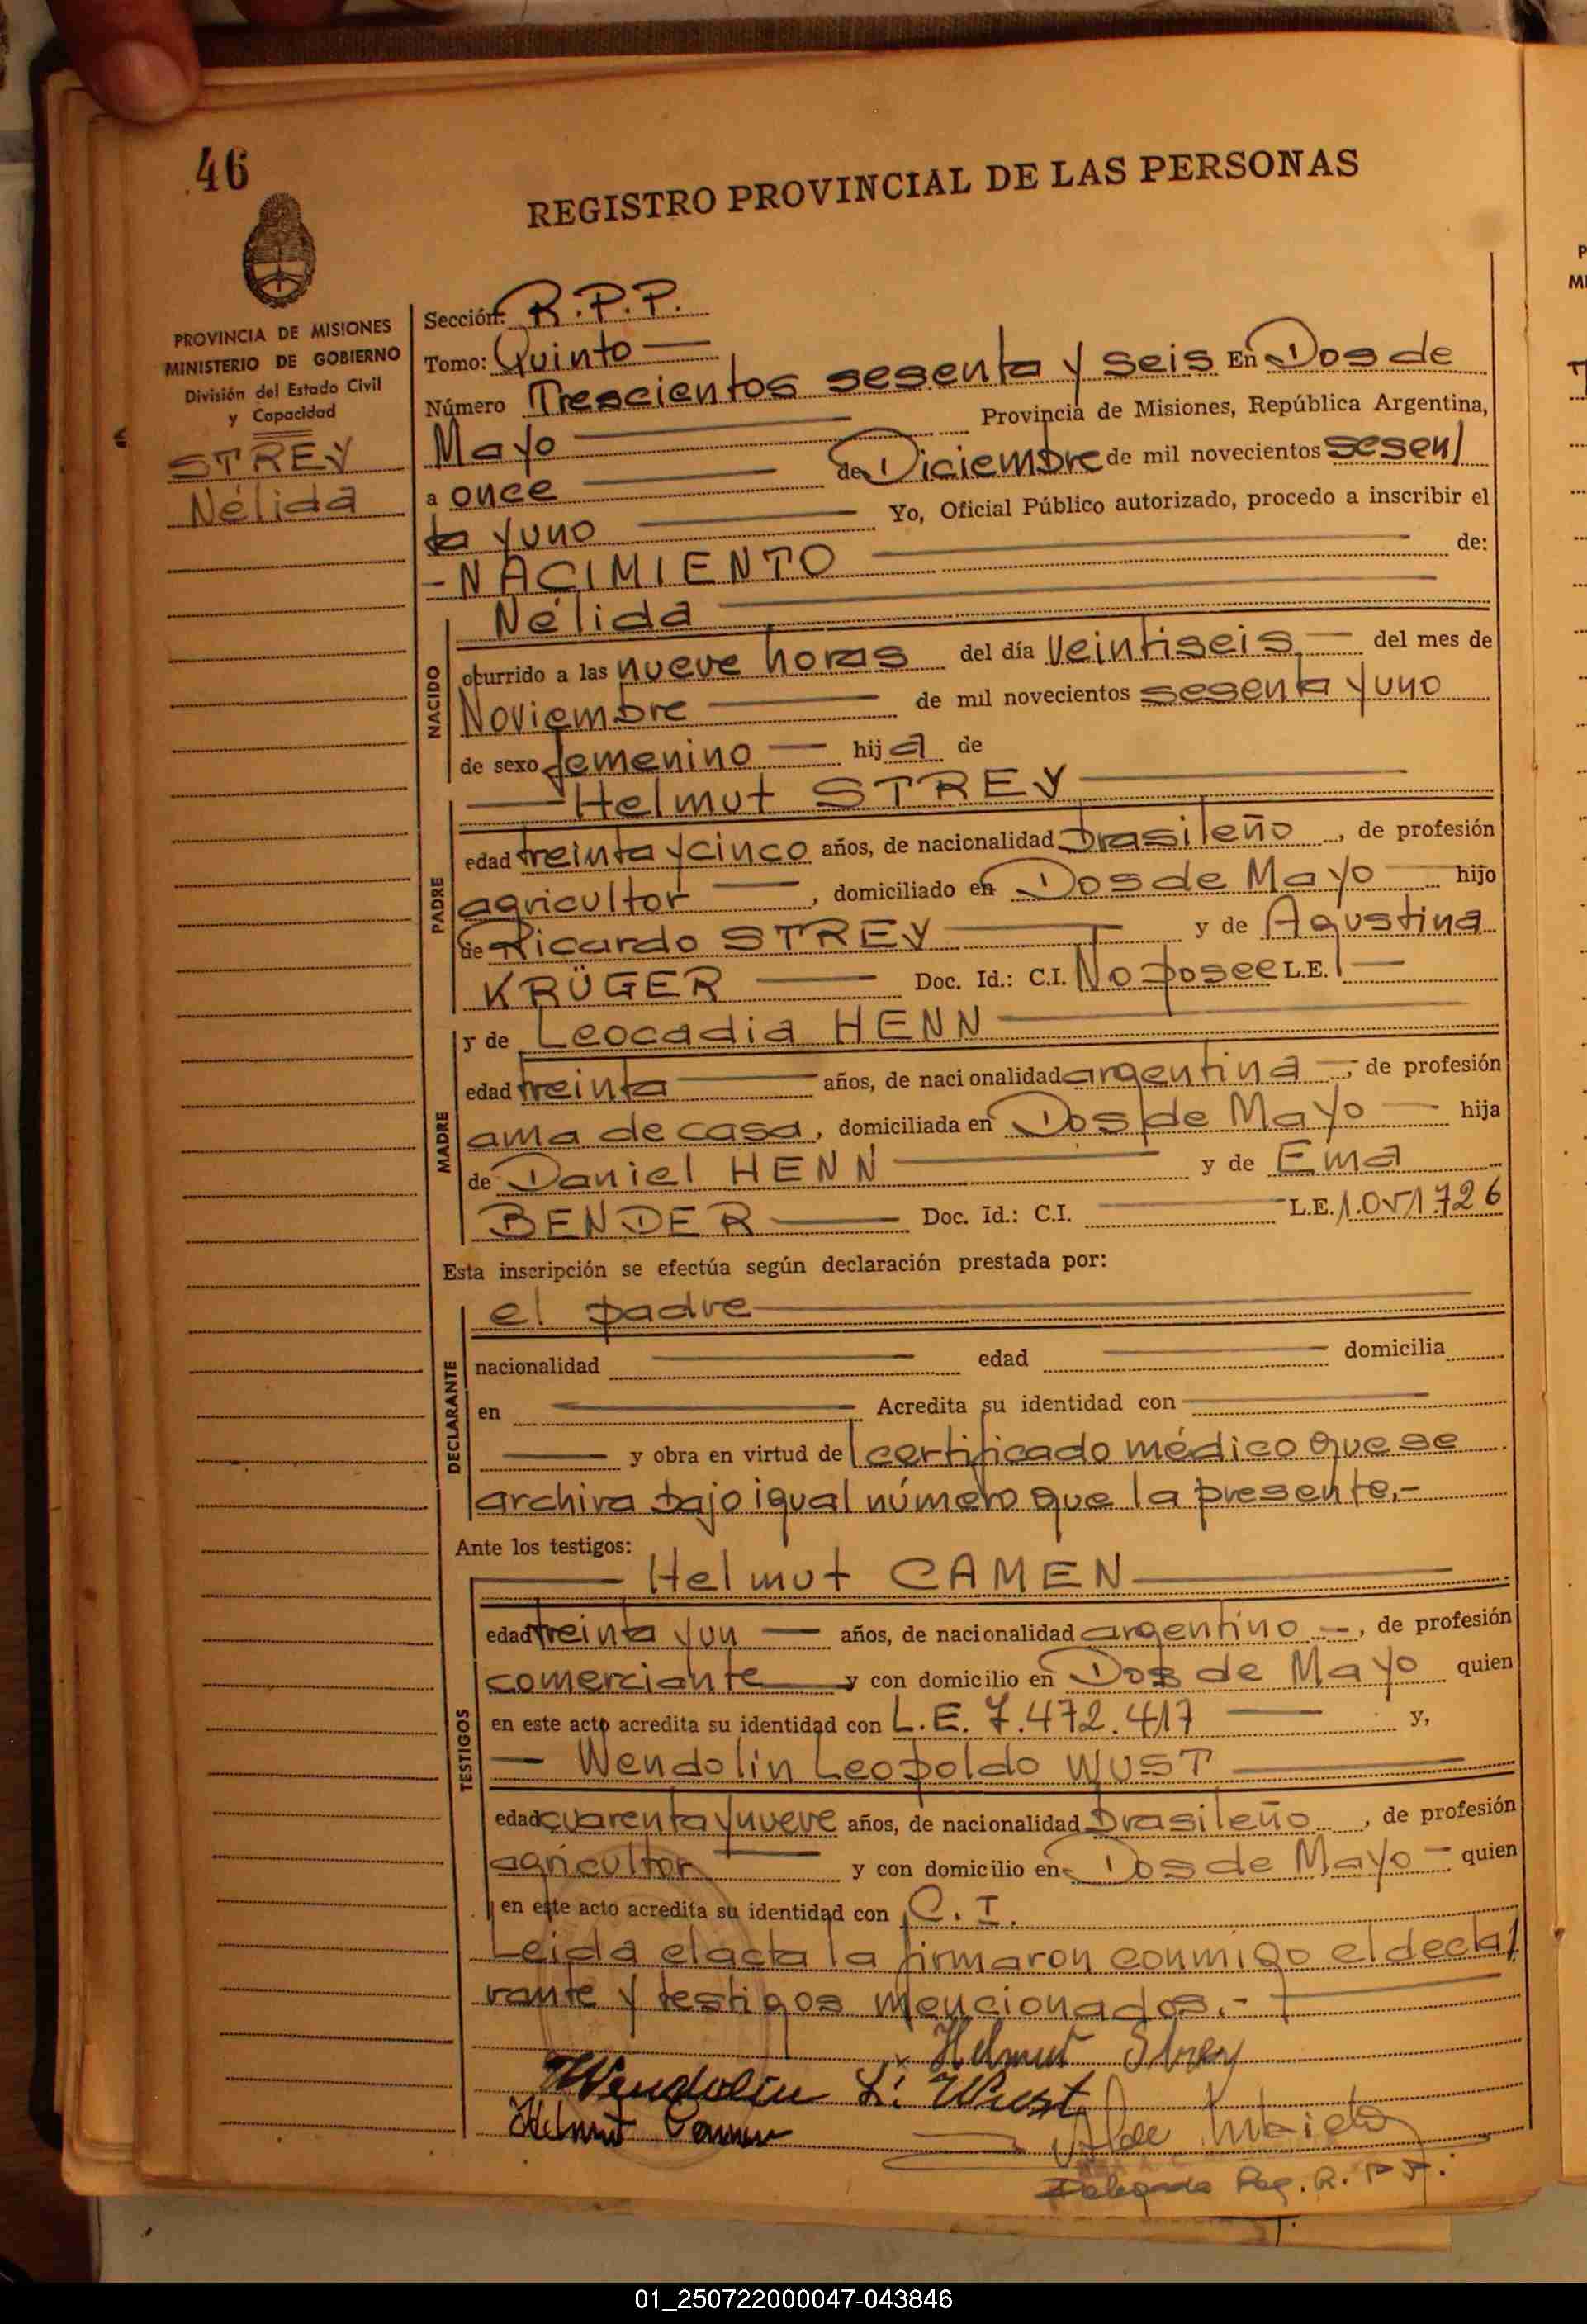 46
REGISTRO PROVINCIAL DE LAS PERSONAS
PROVINCIA DE MISIONES
MINISTERIO DE GOBIERNO
División del Estado Civil
y Capacidad
STREY
Nélida
Sección: R.P.P.
Tomo: Quinto
Número Trescientos sesenta y seis En Dos de
Mayo Provincia de Misiones, República Argentina,
a once de Diciembre de mil novecientos sesen/
ta y uno Yo, Oficial Público autorizado, procedo a inscribir el
-NACIMIENTO de:
Nélida
NACIDO
ocurrido a las nueve horas del día veintiseis del mes de
Noviembre de mil novecientos sesenta y uno
de sexo femenino hija de
Helmut STREY
PADRE
edad treinta y cinco años, de nacionalidad brasileño, de profesión
agricultor, domiciliado en Dos de Mayo hijo
de Ricardo STREY y de Agustina
KRÜGER Doc. Id.: C.I. No posee L.E.
y de Leocadia HENN
MADRE
edad treinta años, de nacionalidad argentina, de profesión
ama de casa, domiciliada en Dos de Mayo hija
de Daniel HENN y de Ema
BENDER Doc. Id.: C.I. L.E. 1.051.726
Esta inscripción se efectúa según declaración prestada por:
el padre
DECLARANTE
nacionalidad edad domicilia
en Acredita su identidad con
y obra en virtud de certificado médico que se
archiva bajo igual número que la presente.-
Ante los testigos:
Helmut CAMEN
TESTIGOS
edad treinta y un años, de nacionalidad argentino, de profesión
comerciante y con domicilio en Dos de Mayo quien
en este acto acredita su identidad con L.E. 7.472.417 y,
Wendolin Leopoldo WUST
edad cuarenta y nueve años, de nacionalidad brasileño, de profesión
agricultor y con domicilio en Dos de Mayo quien
en este acto acredita su identidad con C.I.
Leida el acta la firmaron conmigo el decla/
rante y testigos mencionados.-
Helmut Strey
Wendolin L. Wust
Helmut Camen
Delegado Reg. R.P.P.
01_250722000047-043846